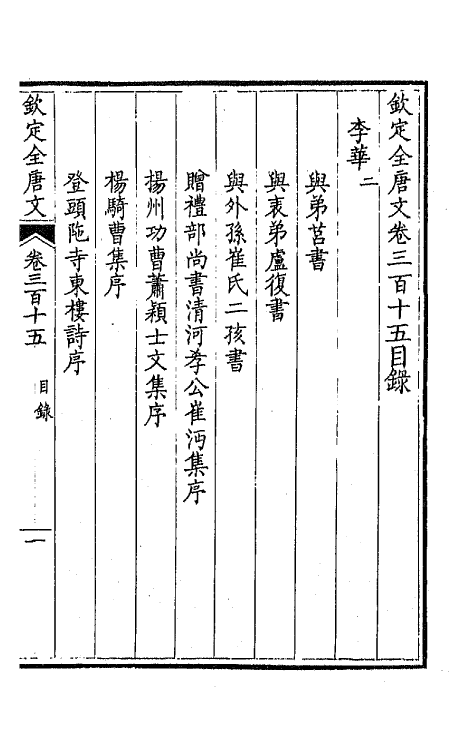 欽定全唐文卷三百十五目錄
李華二
與弟莒書
與表弟盧復書
與外孫崔氏二孩書
贈禮部尚書清河孝公崔沔集序
揚州功曹蕭穎士文集序
楊騎曹集序
登頭陁寺東樓詩序
欽定全唐文 卷三百十五 目錄 一